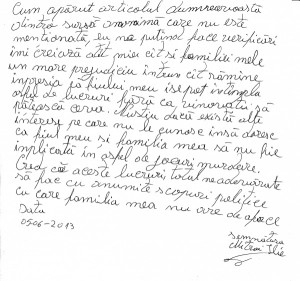 Cum apărut articolul dumneavoastră
dintro sursă anonimă care nu este
menționată, eu nu puținol face verificări
imi creiară atit miei cit si familiei mele
un mare prejudiciu intrus cit rămîne
inpresia că fiului meu i se pot intimpla
astfel de lucruri fără ca, vinovatii să
pătească ceva. Nustiu dacă există alte
interese pe care nu le cunosc insă doresc
ca fiul meu si familia mea să nu fie
implicată in astfel de jocuri murdare.
Cred că aceste lucruri total neadevarate
să fac cu anumite scopuri politice
cu care familia mea nu are de aface
Data
0506-2013
semnătura
Mitroi Ilie